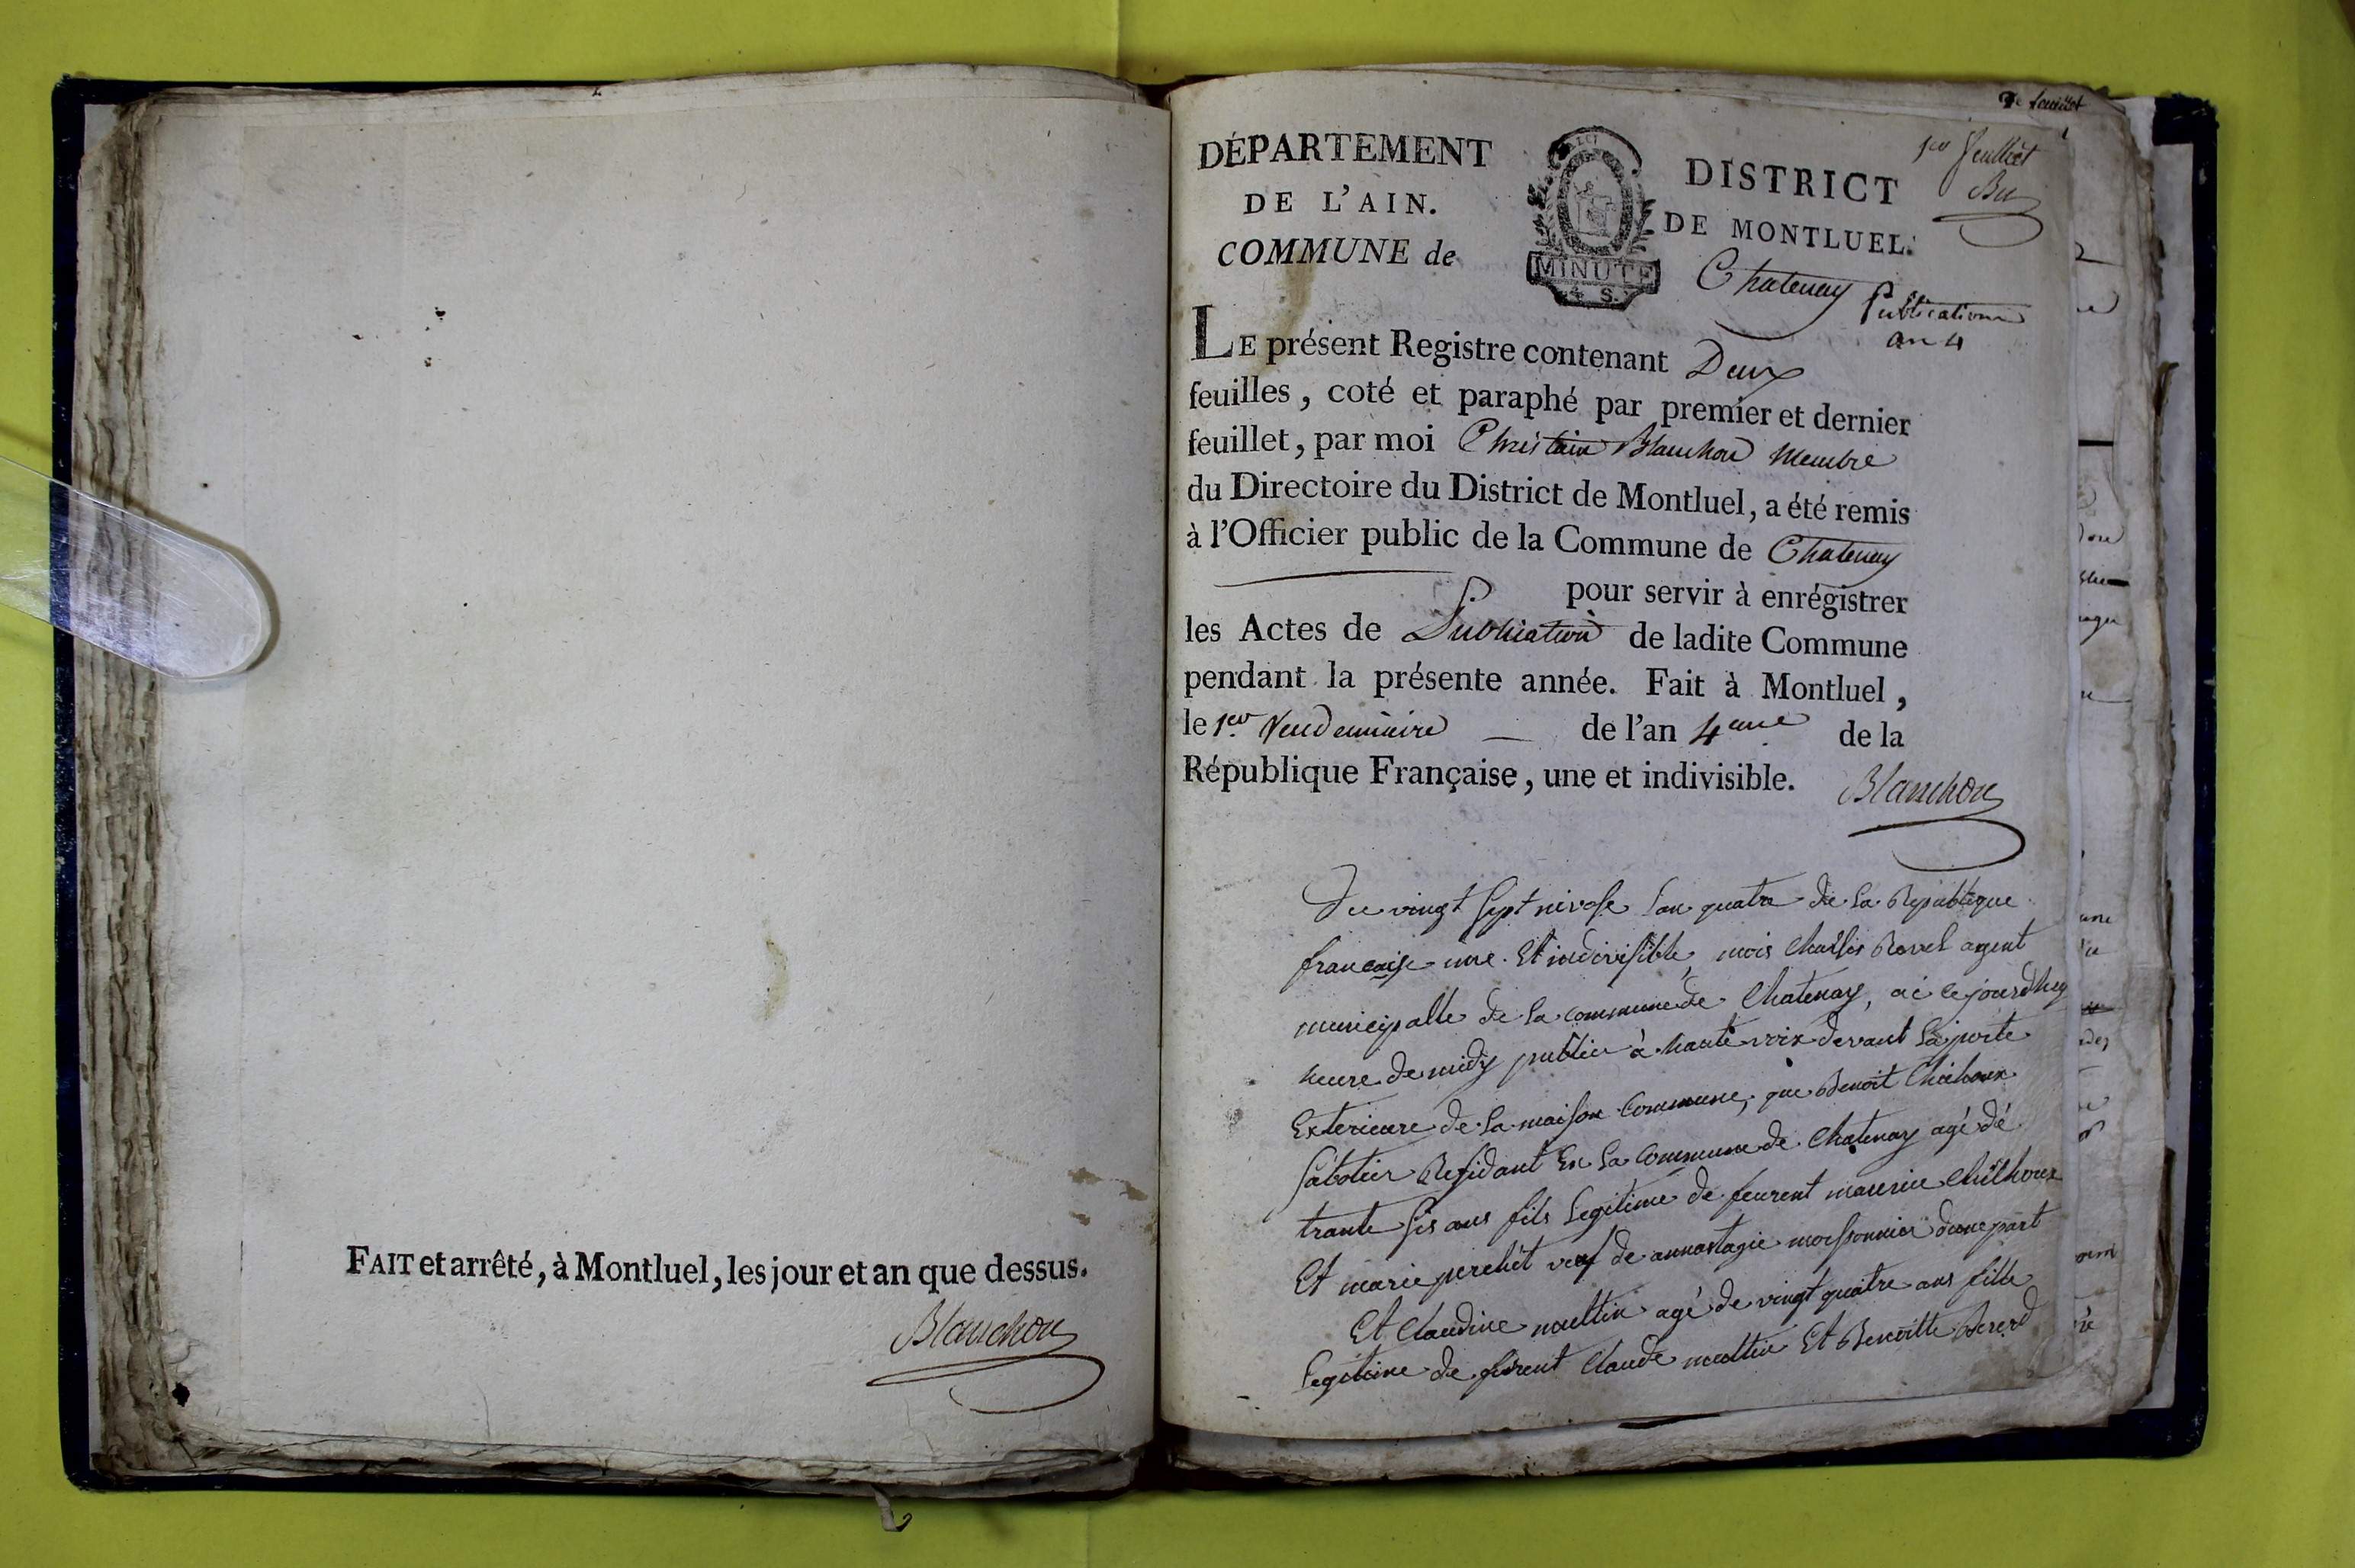 FAIT et arrêté, à Montluel, les jour et an que dessus.
Blanchon
2e feuillet
1er feuillet
Bu
DÉPARTEMENT
DE L'AIN.
COMMUNE de
MINUTE
4 S.
DISTRICT
DE MONTLUEL.
Chatenay
Publications
an 4
LE présent Registre contenant Deux
feuilles, coté et paraphé par premier et dernier
feuillet, par moi Christain Blanchon Membre
du Directoire du District de Montluel, a été remis
à l'Officier public de la Commune de Chatenay
pour servir à enrégistrer
les Actes de Publication de ladite Commune
pendant la présente année. Fait à Montluel,
le 1er Vendemiaire de l'an 4eme de la
République Française, une et indivisible.
Blanchon
Du vingt sept nivose lan quatre de la Republique
francaise une et indivisible, mois Charles Ravel agent
municipalle de la commune de Chatenay, ai cejourdhuy
heure de midy publier à haute voix devant la porte
Exterieure de la maison Commune, que Benoit Chilhoux
Sabotier Residant En la Commune de Chatenay agé dé
trante sis ans fils Legitime de feurent maurice Chilhoux
Et marie perchet veuf de annastagie moissonnier dune part
Et Claudine moultin agé de vingt quatre ans fille
Legitime de feurent Claude moultin Et Benoitte Bererd